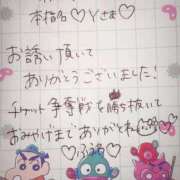 本指名♡Yさま♡
お誘い頂いて
ありがとうございました!
チケット争奪戦を勝ち抜いて
おみやげまでありがとね
♡ふうる♡